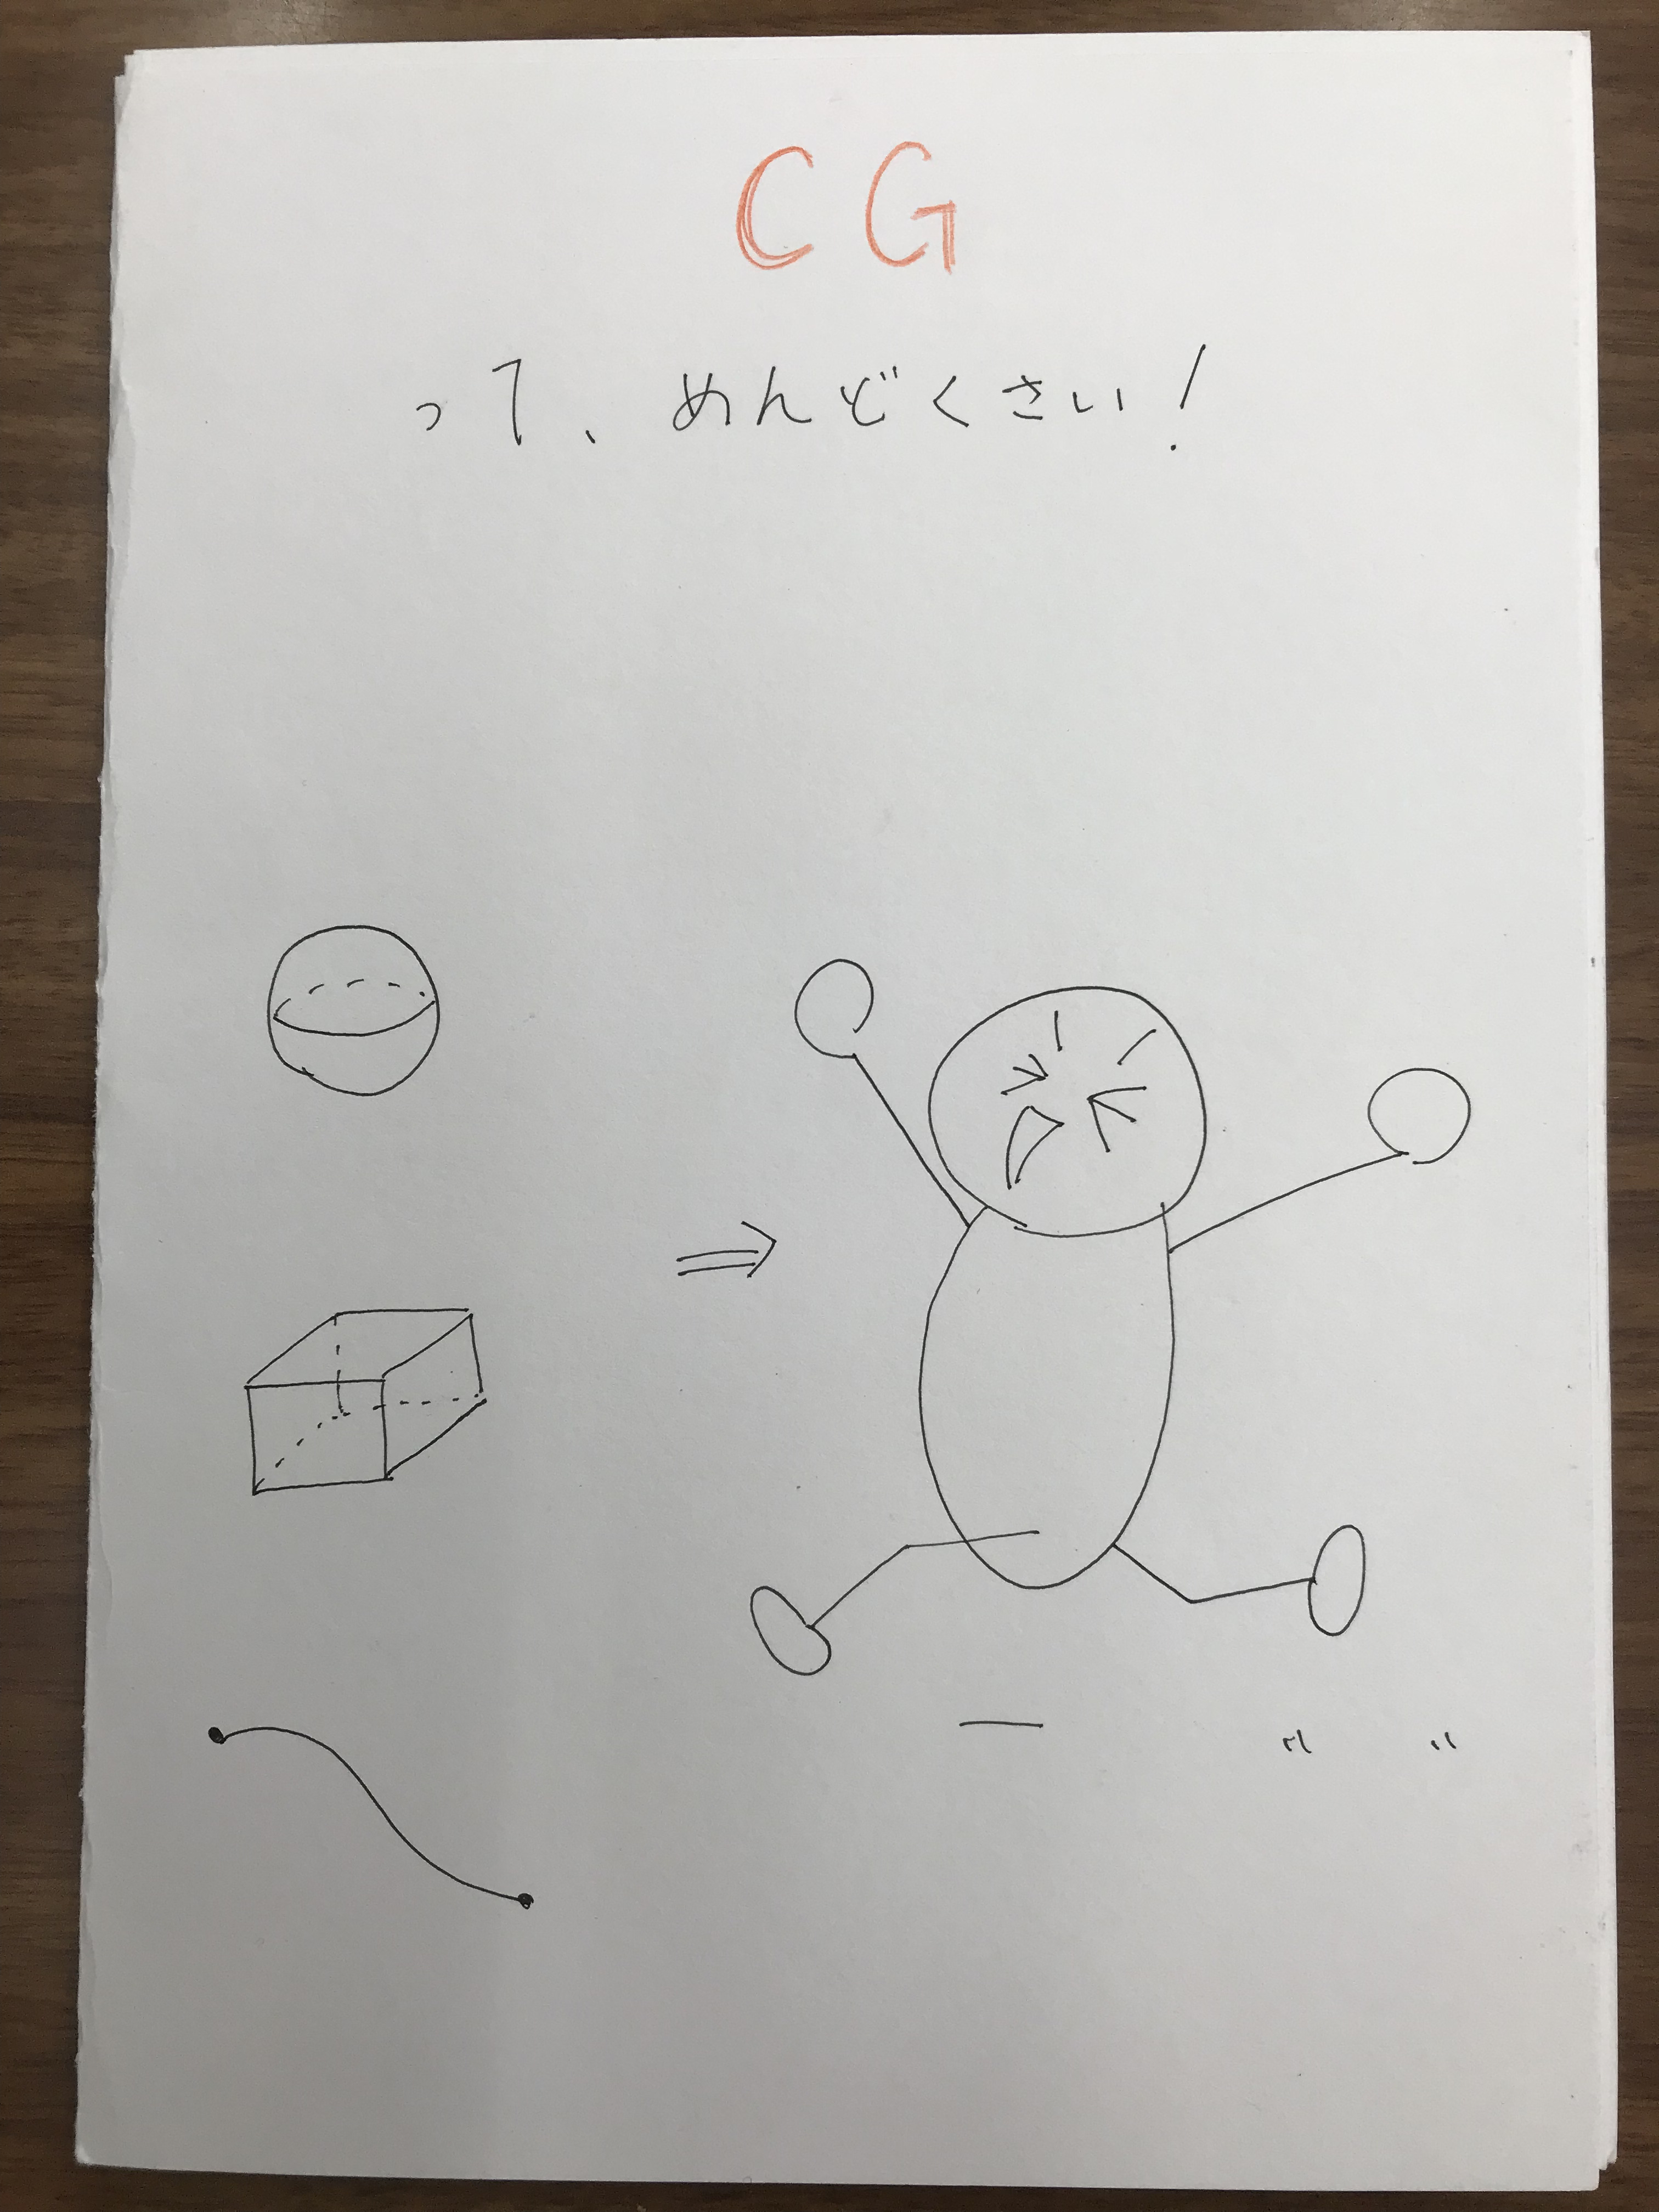 CG
って、めんどくさい!